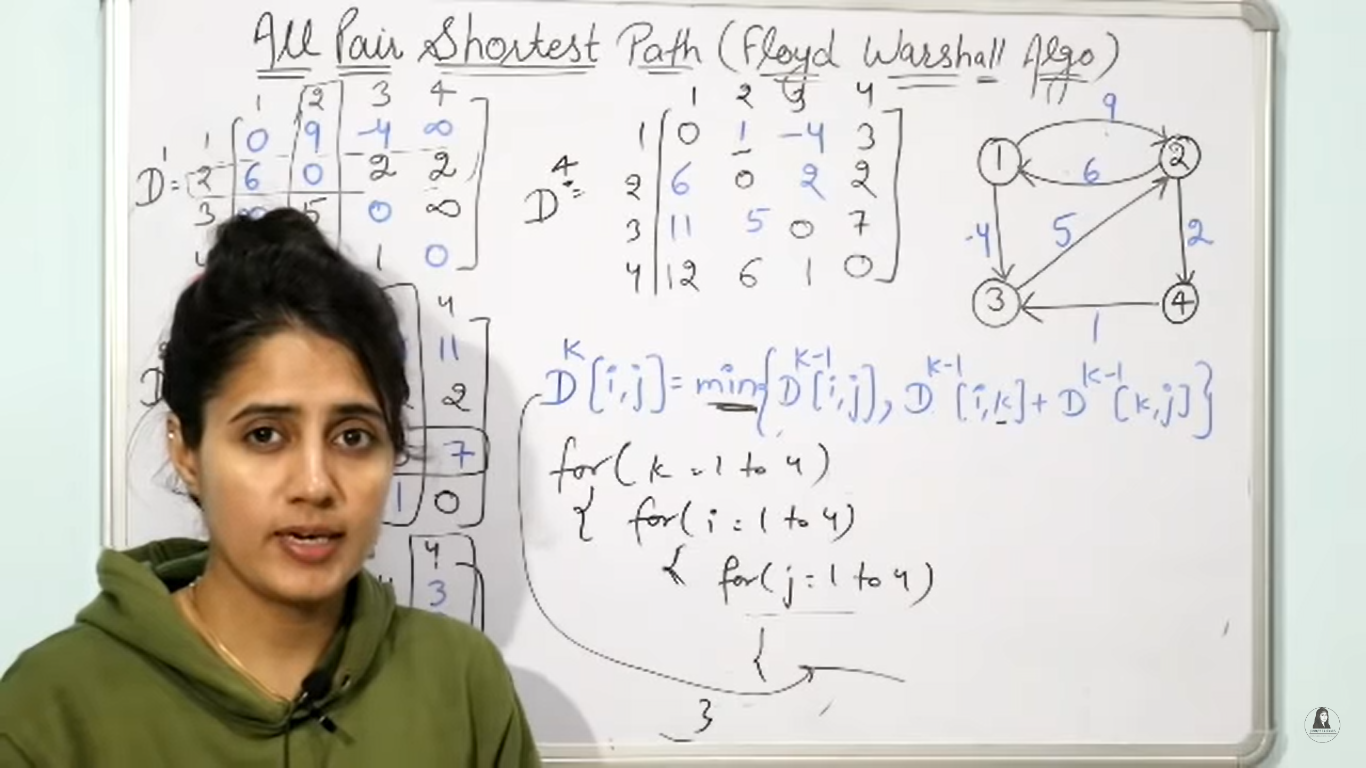 All Pair Shortest Path (Floyd Warshall Algo)
1 2 3 4
1 0 9 -4 ∞
D¹ = 2 6 0 2 2
3 ∞ 5 0 ∞
4 1 0
4
11
2
7
1 0
4
3
1 2 3 4
1 0 1 -4 3
D⁴ = 2 6 0 2 2
3 11 5 0 7
4 12 6 1 0
9
1 2
6
-4 5 2
3 4
1
Dᵏ[i,j] = min{Dᵏ⁻¹[i,j], Dᵏ⁻¹[i,k] + Dᵏ⁻¹[k,j]}
for( k = 1 to 4)
{ for( i = 1 to 4)
{ for( j = 1 to 4)
{